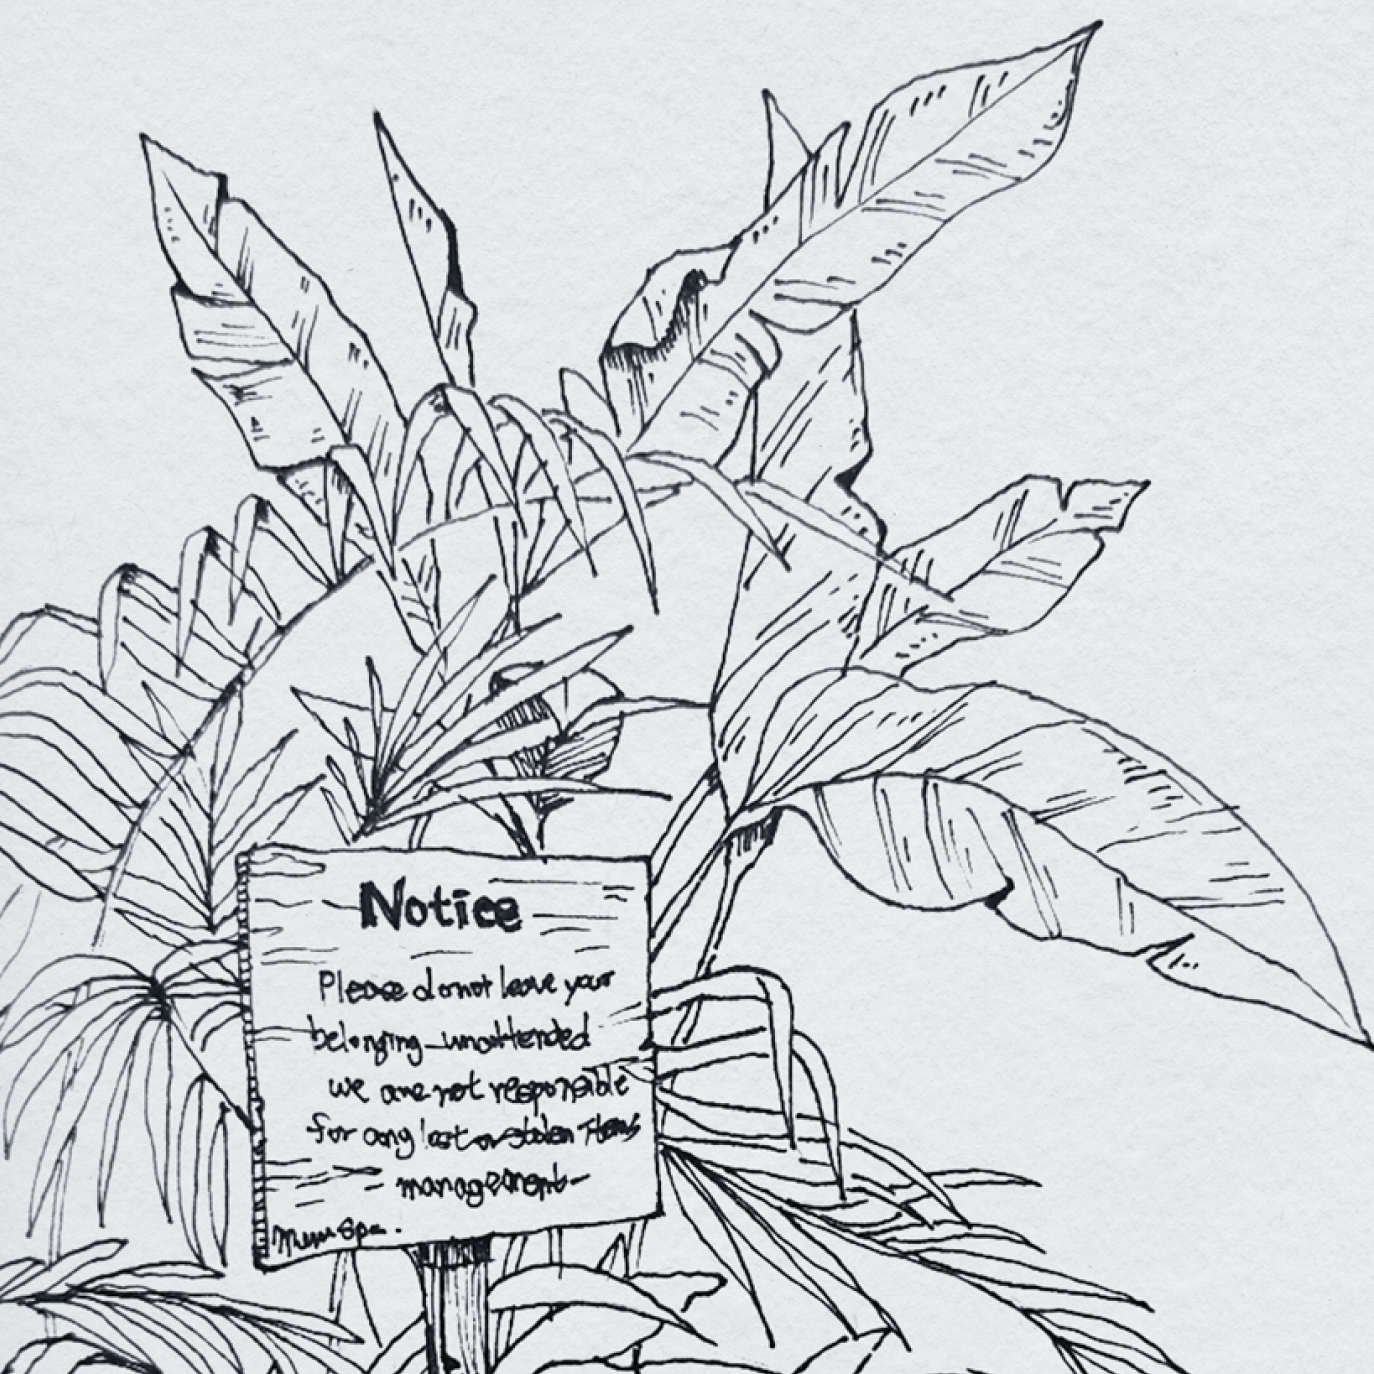 Notice
Please do not leave your
belonging_unattended
we are not responsible
for any lost or stolen Items
-management-